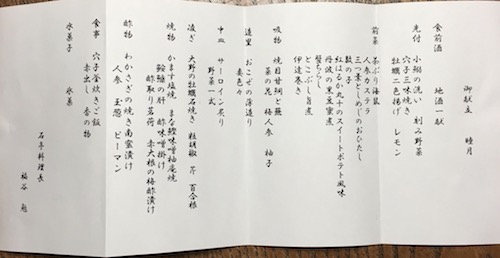 御献立　睦月
食前酒　地酒一献
先付　小鯛の洗い　刻み野菜
穴子三味焼き
牡蠣二色揚げ　レモン
前菜　茶ぶり海鼠
人参カステラ
三つ葉としめじのおひたし
数の子
紅はるか丸十のスイートポテト風味
丹波の黒豆蜜煮
蟹ちらし
とこぶし旨煮
伊達巻き
吸物　焼目甘鯛と蕪
菜の花　梅人参　柚子
造里　おこぜの薄造り
妻色々
中皿　サーロイン炙り
野菜一式
凌ぎ　大野の牡蠣石焼き　粒胡椒　芹　百合根
焼物　かます塩焼　まな鰹味噌柚庵焼
鮟鱇の肝　酢味噌掛け
酢取り茗荷　赤大根の梅酢漬け
酢物　わかさぎの焼き南蛮漬け
人参　玉葱　ピーマン
食事　穴子釜炊きご飯
赤出し　香の物
水菓子　氷菓
石亭料理長
福谷　勉